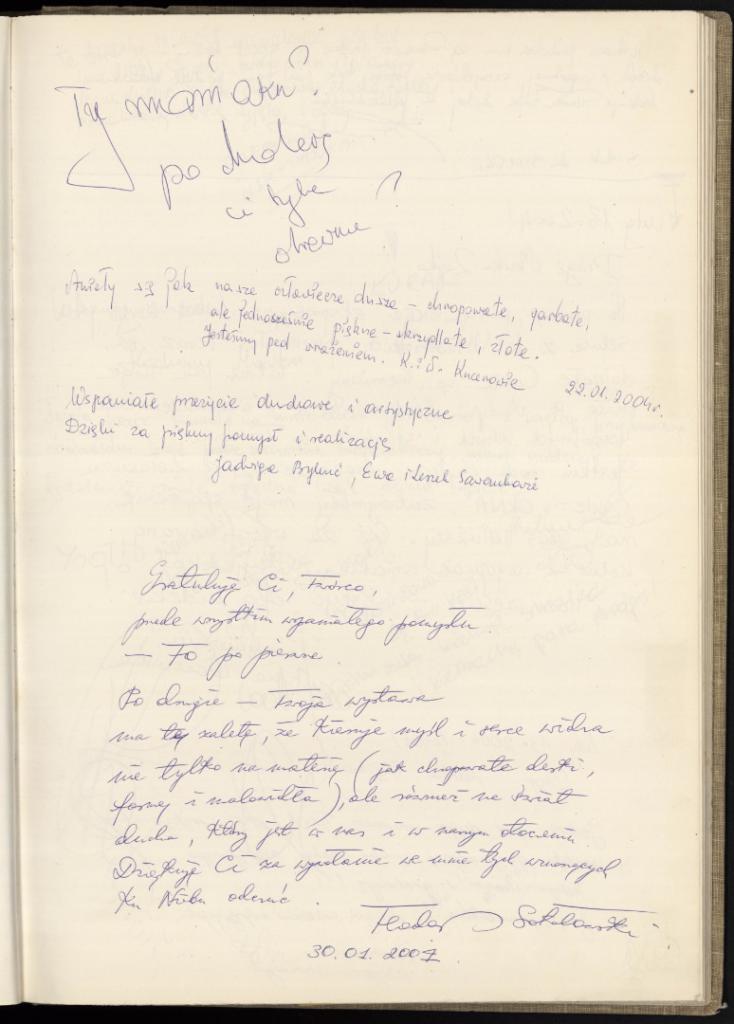 Ty maniaku?
po cholerę
ci tyle
drewna?
Anioły są jak nasze człowiecze dusze – chropowate, garbate,
ale jednocześnie piękne – skrzydlate, złote.
Jesteśmy pod wrażeniem. K. i S. 22.01.2004r.
Wspaniałe przeżycie duchowe i artystyczne
Dzięki za piękny pomysł i realizację
Jadwiga , Ewa i Leszek
Gratuluję Ci, Twórco,
przede wszystkim wspaniałego pomysłu.
— To po pierwsze.
Po drugie — Twoja wystawa
ma tę zaletę, że kieruje myśl i serce widza
nie tylko na materię (jak chropowate deski,
farby i malowidła), ale również na świat
ducha, który jest w nas i w naszym otoczeniu.
Dziękuję Ci za wyzwolenie we mnie tych wznoszących
ku Niebu odczuć.
Teodor Sokołowski
30.01.2004